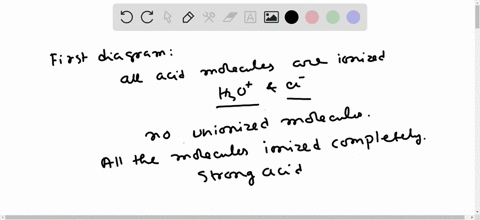 First diagram:
all acid molecules are ionized
H₃O⁺ & Cl⁻
no unionized molecules.
All the molecules ionized completely.
Strong acid